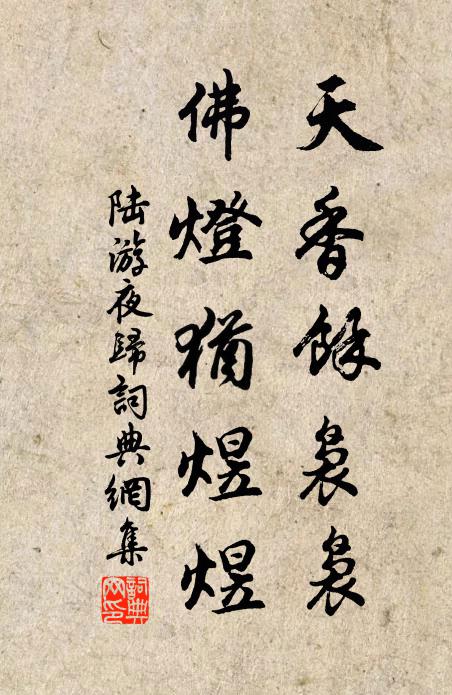 天香餘裊裊
佛燈猶煜煜
陸游夜歸詞典網集
詞典網印